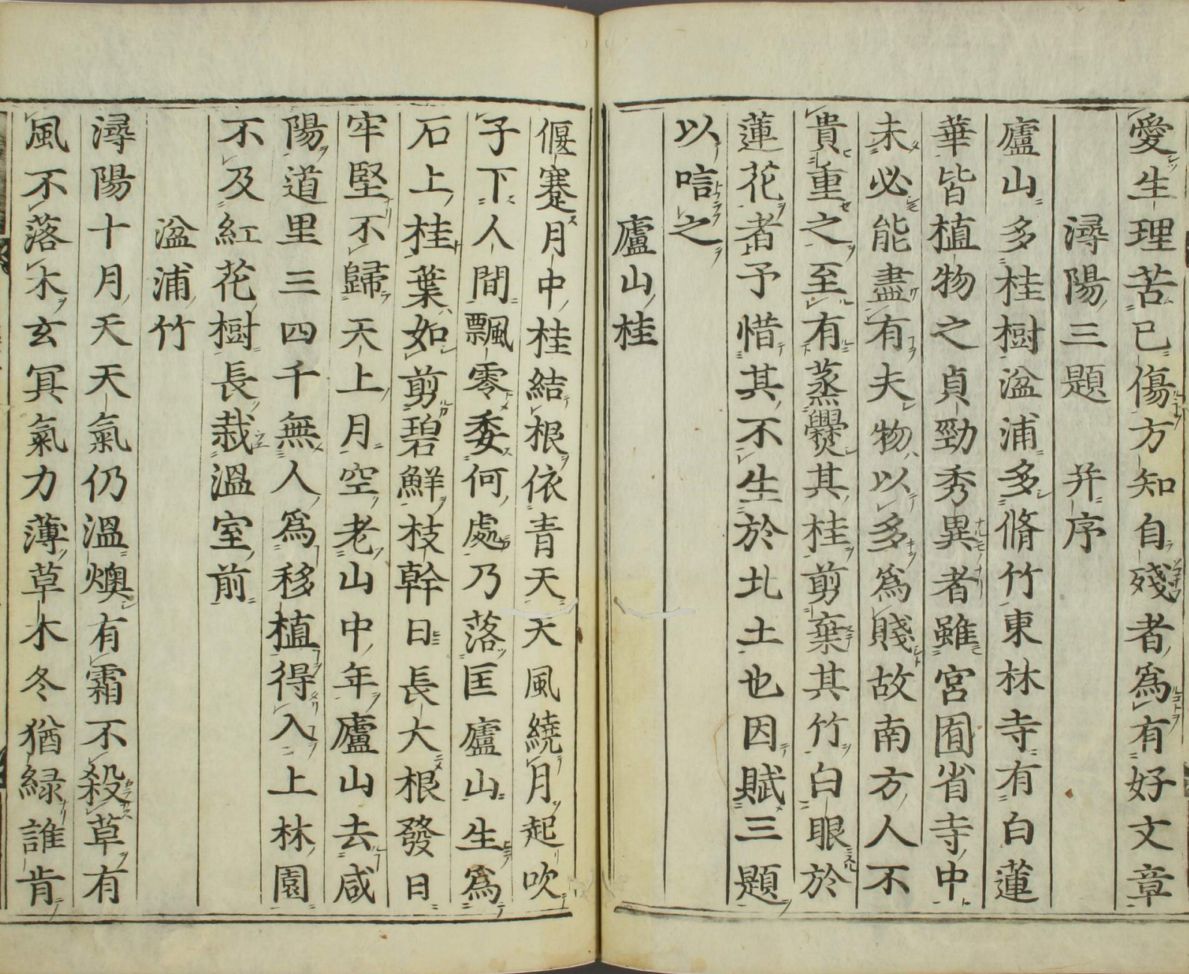 愛生理苦已傷方知自殘者爲有好文章
潯陽三題 并序
廬山多桂樹湓浦多脩竹東林寺有白蓮
華皆植物之貞勁秀異者雖宮囿省寺中
未必能盡有夫物以多爲賤故南方人不
貴重之至有蒸爨其桂剪棄其竹白眼於
蓮花者予惜其不生於北土也因賦三題
以唁之
廬山桂
偃蹇月中桂結根依青天天風繞月起吹
子下人間飄零委何處乃落匡廬山生爲
石上桂葉如剪碧鮮枝幹日長大根發日
牢堅不歸天上月空老山中年廬山去咸
陽道里三四千無人爲移植得入上林園
不及紅花樹長栽溫室前
湓浦竹
潯陽十月天天氣仍溫燠有霜不殺草有
風不落木玄冥氣力薄草木冬猶緑誰肯